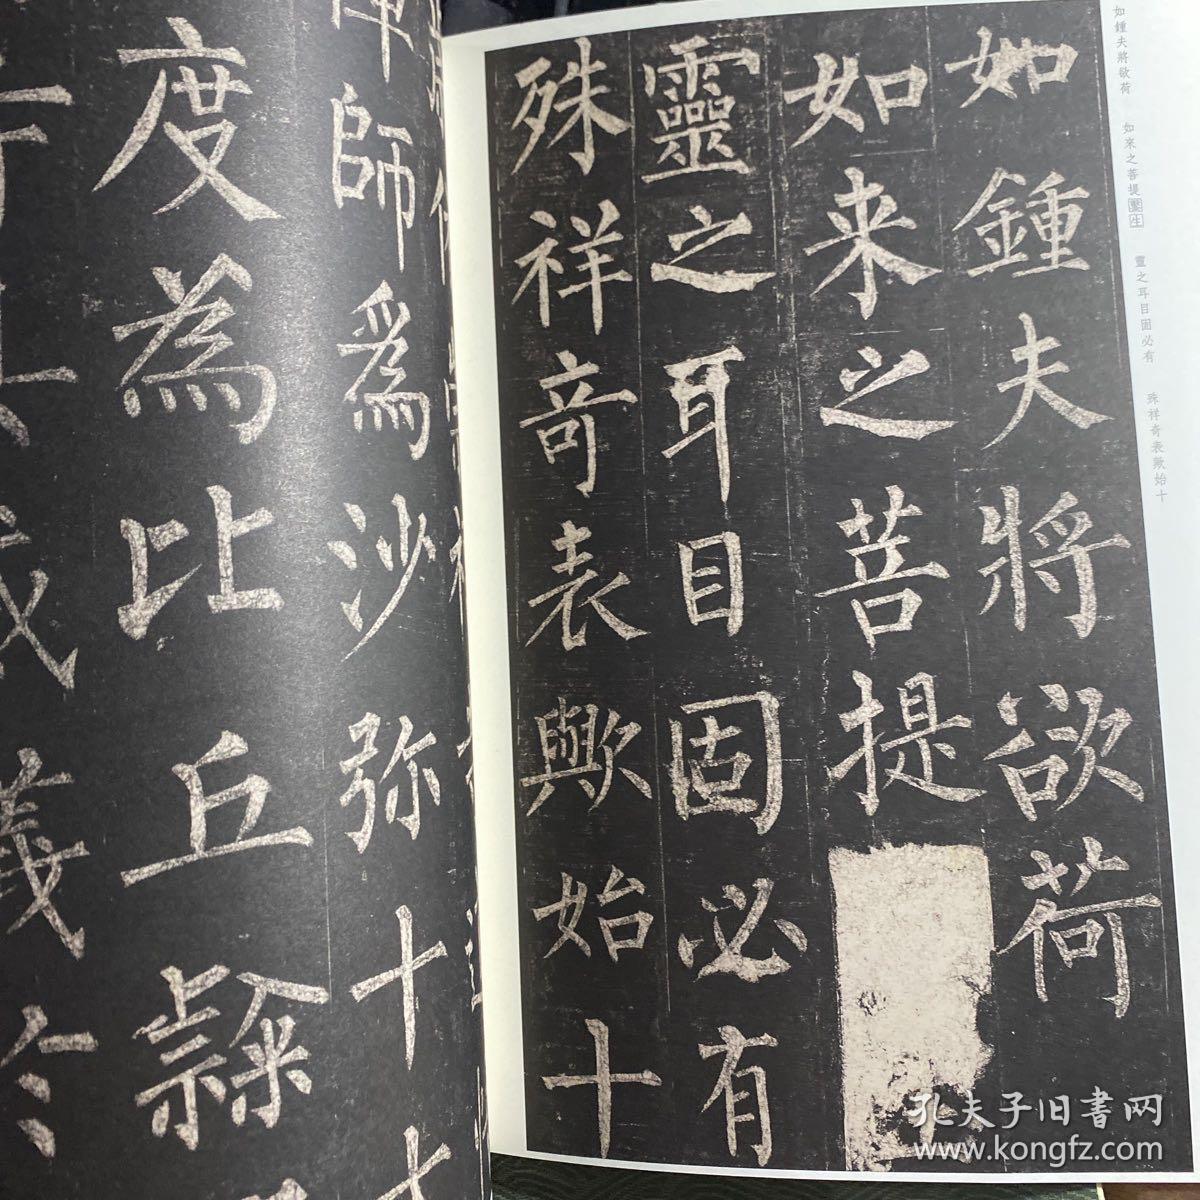 如鍾夫將欲荷
如来之菩提
靈之耳目固必有
殊祥奇表歟始十
如鍾夫將欲荷 如來之菩提聖生 靈之耳目固必有 殊祥奇表歟始十
師爲沙弥十
度為比丘隸
孔夫子旧書网
www.kongfz.com